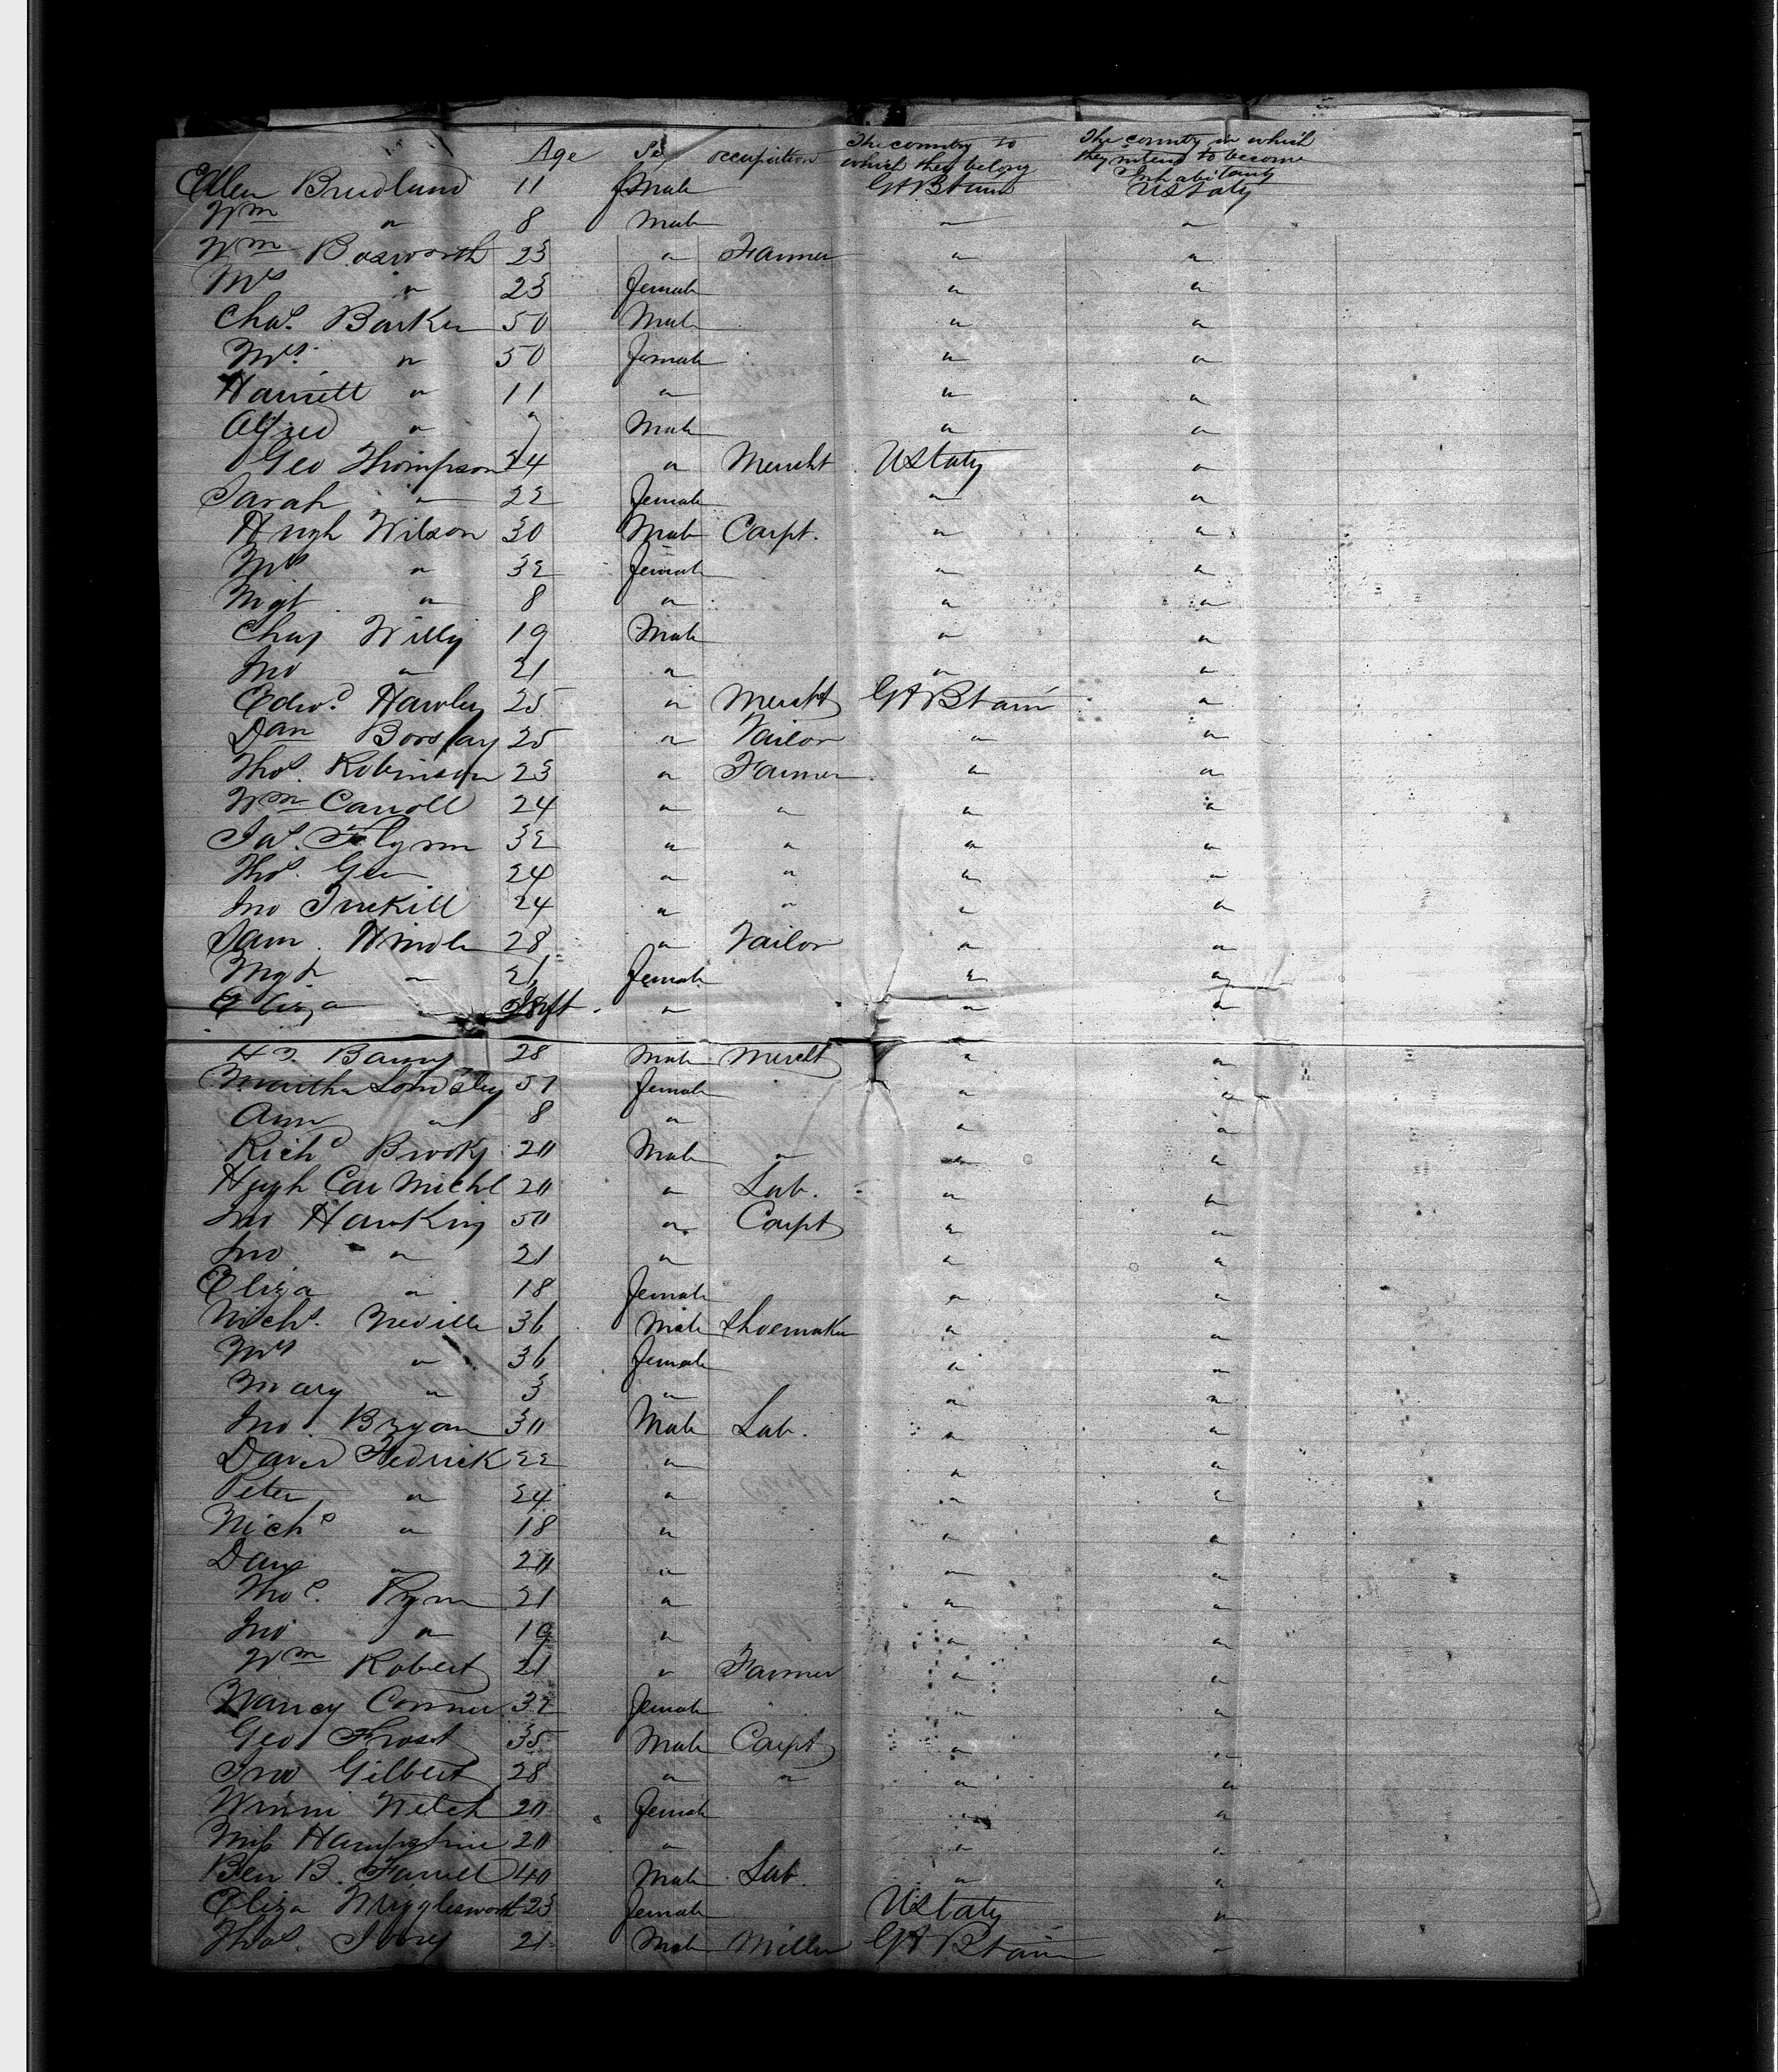 Age Sex occupation The country to which they belong The country in which they intend to become Inhabitants
Ellen Bredlund 11 female Gt Btain UStates
Wm " 8 Male " "
Wm Bosworth 23 " Farmer " "
Mrs " 23 female " "
Chas. Barker 50 Male " "
Mrs. " 50 female " "
Harriett " 11 " " "
Alfred " 7 Male " "
Geo Thompson 24 " Mercht UStates "
Sarah " 22 female " "
Hugh Wilson 30 Male Carpt. " "
Mrs " 32 female " "
Mgt " 8 " " "
Chas Willy 19 Male " "
Jno " 21 " " "
Edwd. Hawley 25 " Mercht Gt Btain "
Dan Borslay 25 " Tailor " "
Thos. Robinson 23 " Farmer " "
Wm Carroll 24 " " " "
Jas. Flynn 32 " " " "
Thos. Gee 24 " " " "
Jno 24 " " " "
Sam. Hindle 28 " Tailor " "
Mgt " 21 female " "
Eliza " Inft. " " "
28 Male Mercht " "
Martha 57 female " "
Ann " 8 " " "
Richd Brooks 20 Male " " "
Hugh CarMichl 20 " Lab. " "
Jno Hawkins 50 " Carpt " "
Jno " 21 " " "
Eliza " 18 female " "
Nichs. Neville 36 Male Shoemaker " "
Mrs " 36 female " "
Mary " 3 " " "
Jno. Bryan 30 Male Lab. " "
David Fedrick 22 " " "
Peter " 24 " " "
Nichs " 18 " " "
Danl " 20 " " "
Thos. Ryn 21 " " "
Jno " 19 " " "
Wm Roberts 21 " Farmer " "
Nancy Conner 32 female " "
Geo Frost 35 Male Carpt " "
Jno Gilbert 28 " " " "
Winni Welch 20 female " "
Miss 20 " " "
Ben B. Farrell 40 Male Lab " "
Eliza Wrigglesworth 23 female UStates "
Thos. Ivory 21 Male Miller Gt Btain "